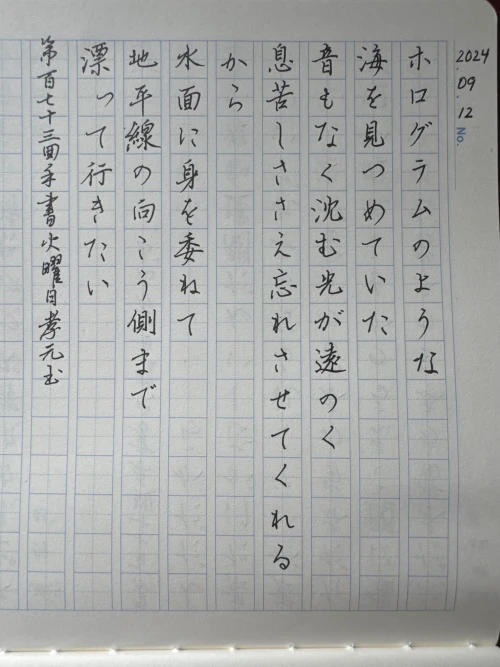 2024.09.12 No.
ホログラムのような
海を見つめていた
音もなく沈む光が遠のく
息苦しささえ忘れさせてくれる
から
水面に身を委ねて
地平線の向こう側まで
漂って行きたい
第百七十三回手書火曜日孝元玉